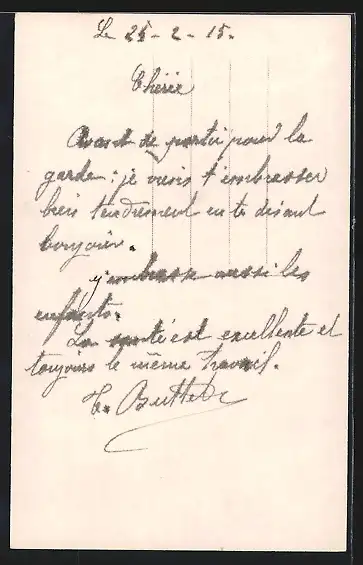 Le 25 - 2 - 15.
Chérie
Avant de partir pour la
garde ; je viens t'embrasser
bien tendrement en te disant
bonjour.
j'embrasse aussi les
enfants.
La santé est excellente et
toujours le même travail.